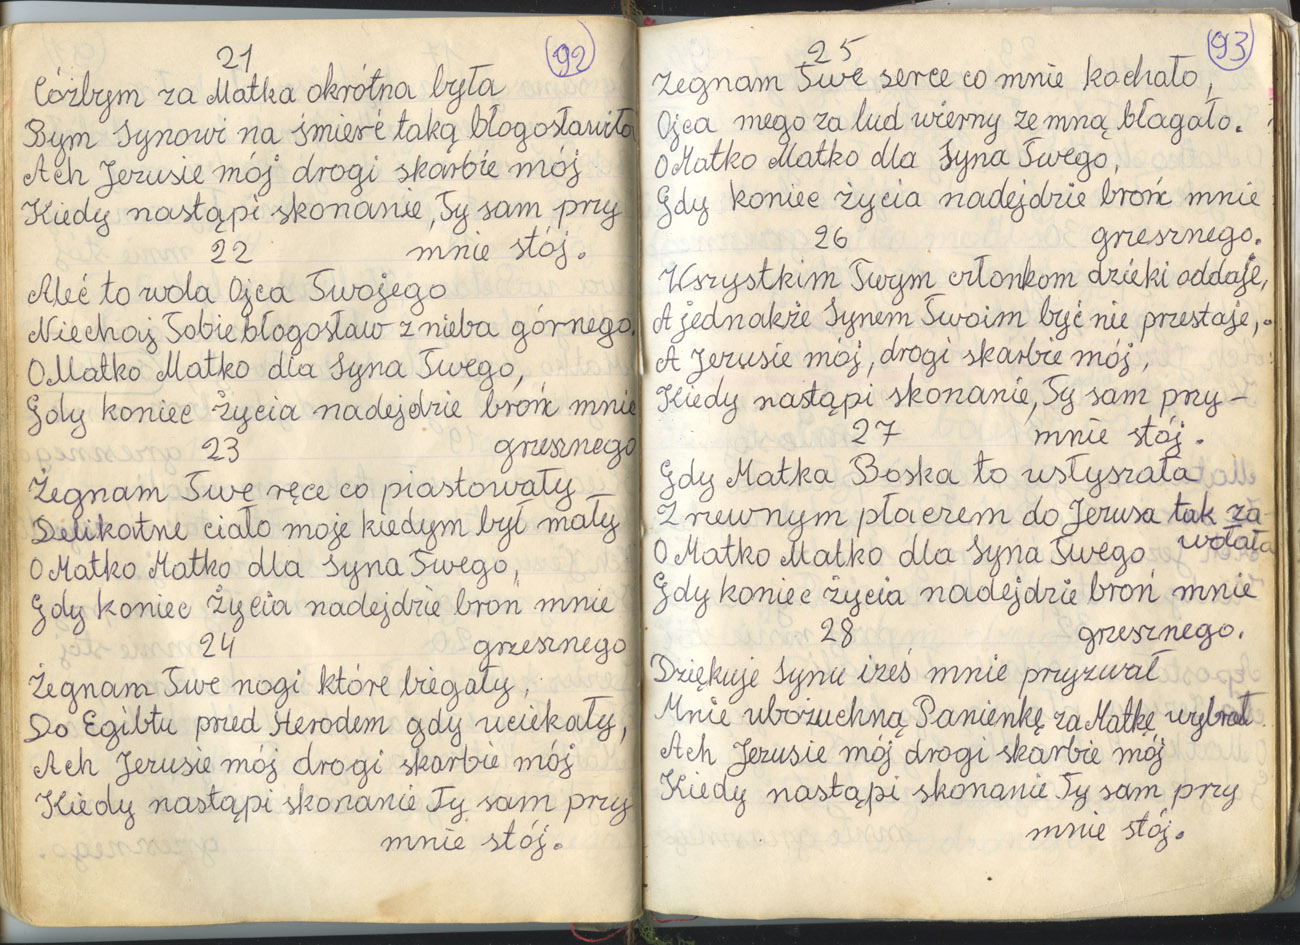 21
(92)
Cóżbym za Matka okrótna była
Bym Synowi na śmierć taką błogosławiła
Ach Jezusie mój drogi skarbie mój
Kiedy nastąpi skonanie, Ty sam, przy
mnie stój.
22
Aleć to wola Ojca Twojego
Niechaj Tobie błogosław z nieba górnego.
O Matko Matko dla Syna Twego,
Gdy koniec życia nadejdzie broń mnie
grzesznego
23
Żegnam Twe ręce co piastowały
Delikatne ciało moje kiedym był mały
O Matko Matko dla Syna Twego,
Gdy koniec życia nadejdzie broń mnie
grzesznego
24
Żegnam Twe nogi które biegały,
Do Egibtu pred Herodem gdy uciekały,
Ach Jezusie mój drogi skarbie mój
Kiedy nastąpi skonanie Ty sam przy
mnie stój.
25
(93)
Żegnam Twe serce co mnie kochało,
Ojca mego za lud wierny ze mną błagało.
O Matko Matko dla Syna Twego,
Gdy koniec życia nadejdzie broń mnie
grzesznego.
26
Wszystkim Twym członkom dzieki oddaje,
A jednakże Synem Twoim być nie przestaje,.
A Jezusie mój, drogi skarbie mój,
Kiedy nastąpi skonanie, Ty sam przy -
mnie stój.
27
Gdy Matka Boska to usłyszała
Z rzewnym płaczem do Jezusa tak za
wołała
O Matko Matko dla Syna Twego
Gdy koniec życia nadejdzie broń mnie
grzesznego.
28
Dziękuje Synu iześ mnie przyzwał
Mnie ubozuchną Panienkę za Matkę wybrał
Ach Jezusie mój drogi skarbie mój
Kiedy nastąpi skonanie Ty sam przy
mnie stój.